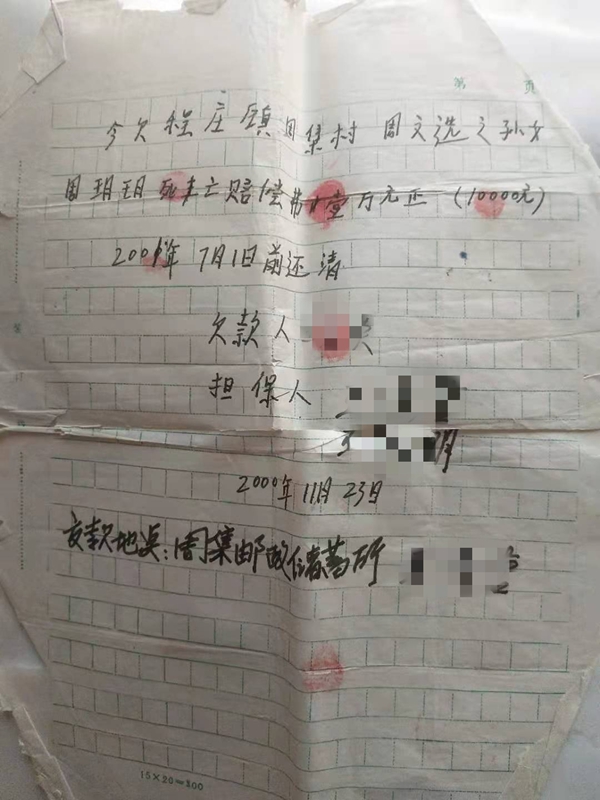 第 页
今欠程庄镇周集村 周文选之孙女
周玥玥死亡赔偿费壹万元正 (10000元)
2001年 7月1日前还清
欠款人
担保人
2000年 11月 23日
交款地点:周集邮政储蓄所
15×20=300